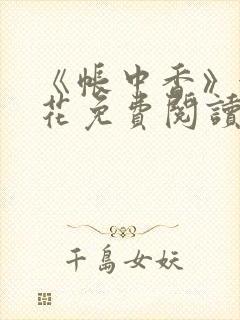 《帳中香》
花免費閱讀
千島女妖